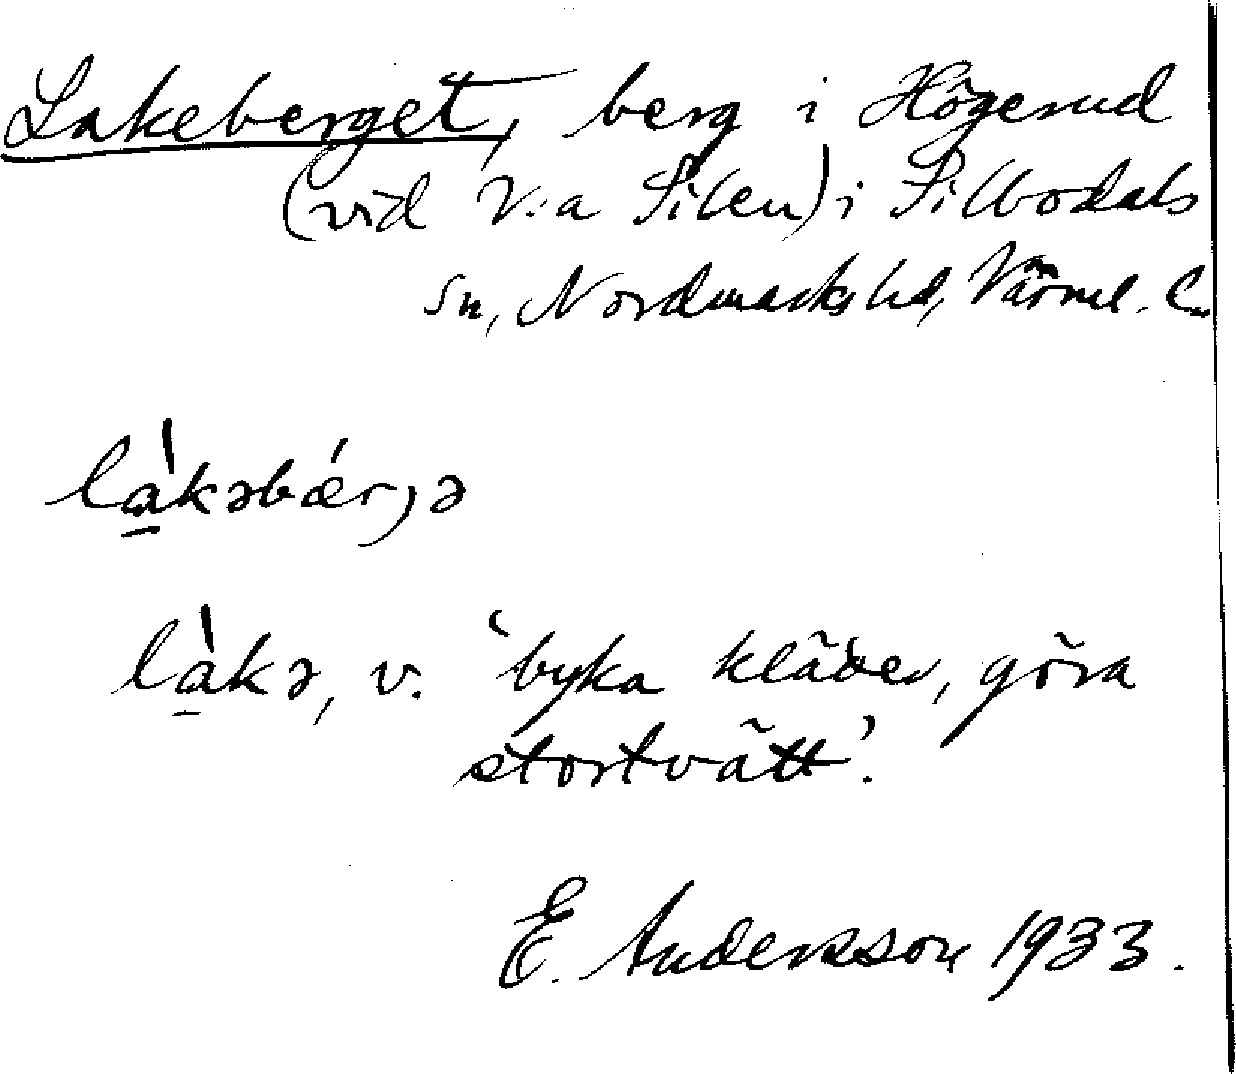 Lakeberget, berg i Högerud
(vid V:a Silen) i Silbodals
sn, Nordmarks hd, Värml. l.
làkəbǽrjə
làkə, v. 'byka kläder, göra
stortvätt'.
E. Andersson 1933.